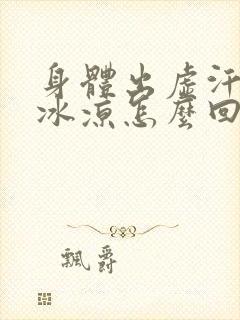 身體出虛汗
冰涼怎麼回
飄爵